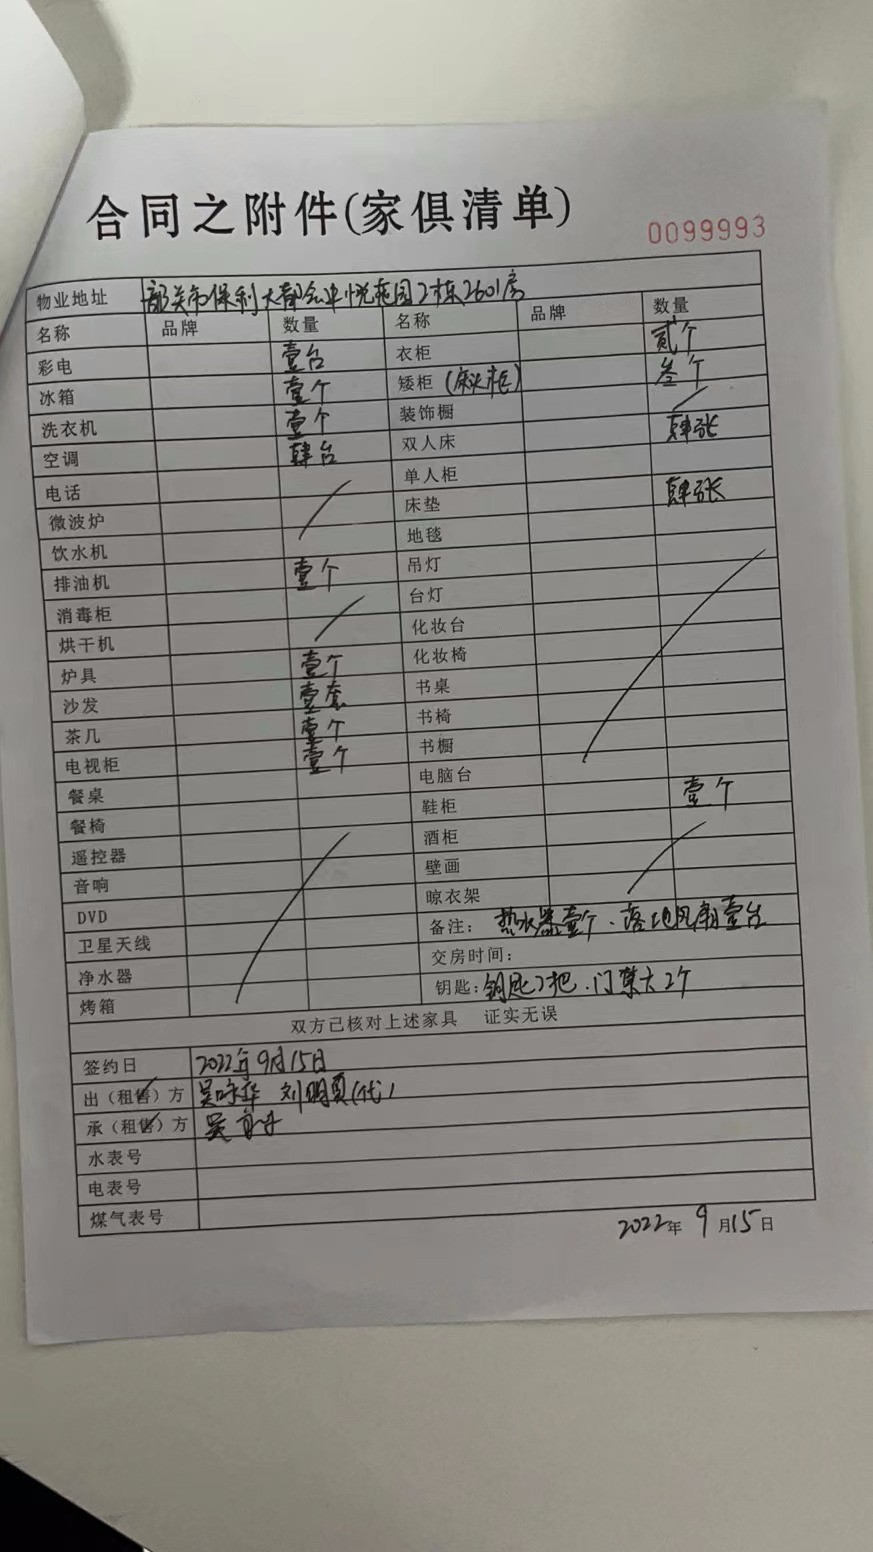 合同之附件(家俱清单)
0099993
物业地址 韶关市保利大都会 悦庭园2栋2601房
名称 品牌 数量 名称 品牌 数量
彩电 壹台 衣柜 贰个
冰箱 壹个 矮柜(床头柜) 叁个
洗衣机 壹个 装饰橱
空调 肆台 双人床 肆张
电话 单人柜
微波炉 床垫 肆张
饮水机 地毯
排油机 壹个 吊灯
消毒柜 台灯
烘干机 化妆台
炉具 壹个 化妆椅
沙发 壹套 书桌
茶几 壹个 书椅
电视柜 壹个 书橱
餐桌 电脑台
餐椅 鞋柜 壹个
遥控器 酒柜
音响 壁画
DVD 晾衣架
卫星天线 备注: 热水器壹个、落地风扇壹台
净水器 交房时间:
烤箱 钥匙:钥匙2把、门禁卡2个
双方已核对上述家具 证实无误
签约日 2022年9月15日
出(租售)方 吴 华 刘明 (代)
承(租售)方 吴
水表号
电表号
煤气表号
2022年9月15日